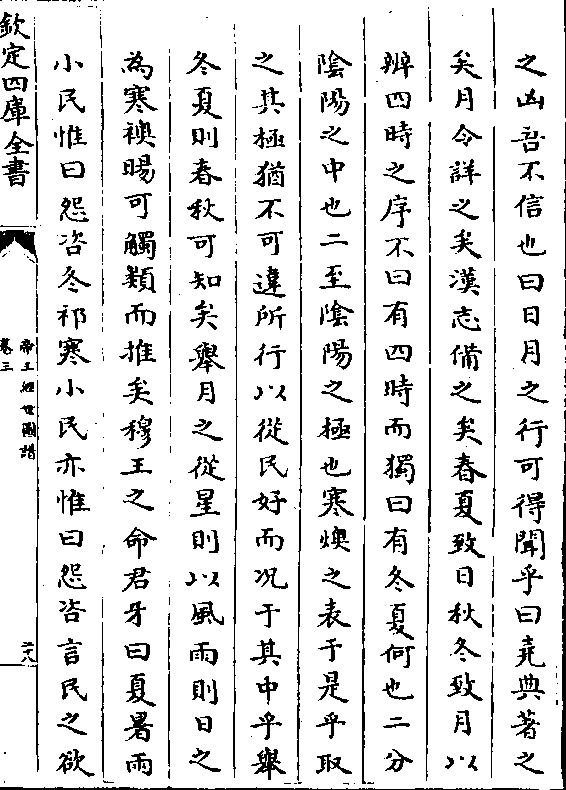 之凶吾不信也曰日月之行可得聞乎曰堯典著之
矣月令詳之矣漢志備之矣春夏致日秋冬致月以
辨四時之序不曰有四時而獨曰有冬夏何也二分
陰陽之中也二至陰陽之極也寒燠之表于是乎取
之其極猶不可違所行以從民好而况于其中乎舉
冬夏則春秋可知矣舉月之從星則以風雨則日之
為寒襖暘可觸類而推矣穆王之命君牙曰夏暑雨
小民惟曰怨咨冬祁寒小民亦惟曰怨咨言民之欲
欽定四庫全書
帝王經世圖譜
卷三
二八